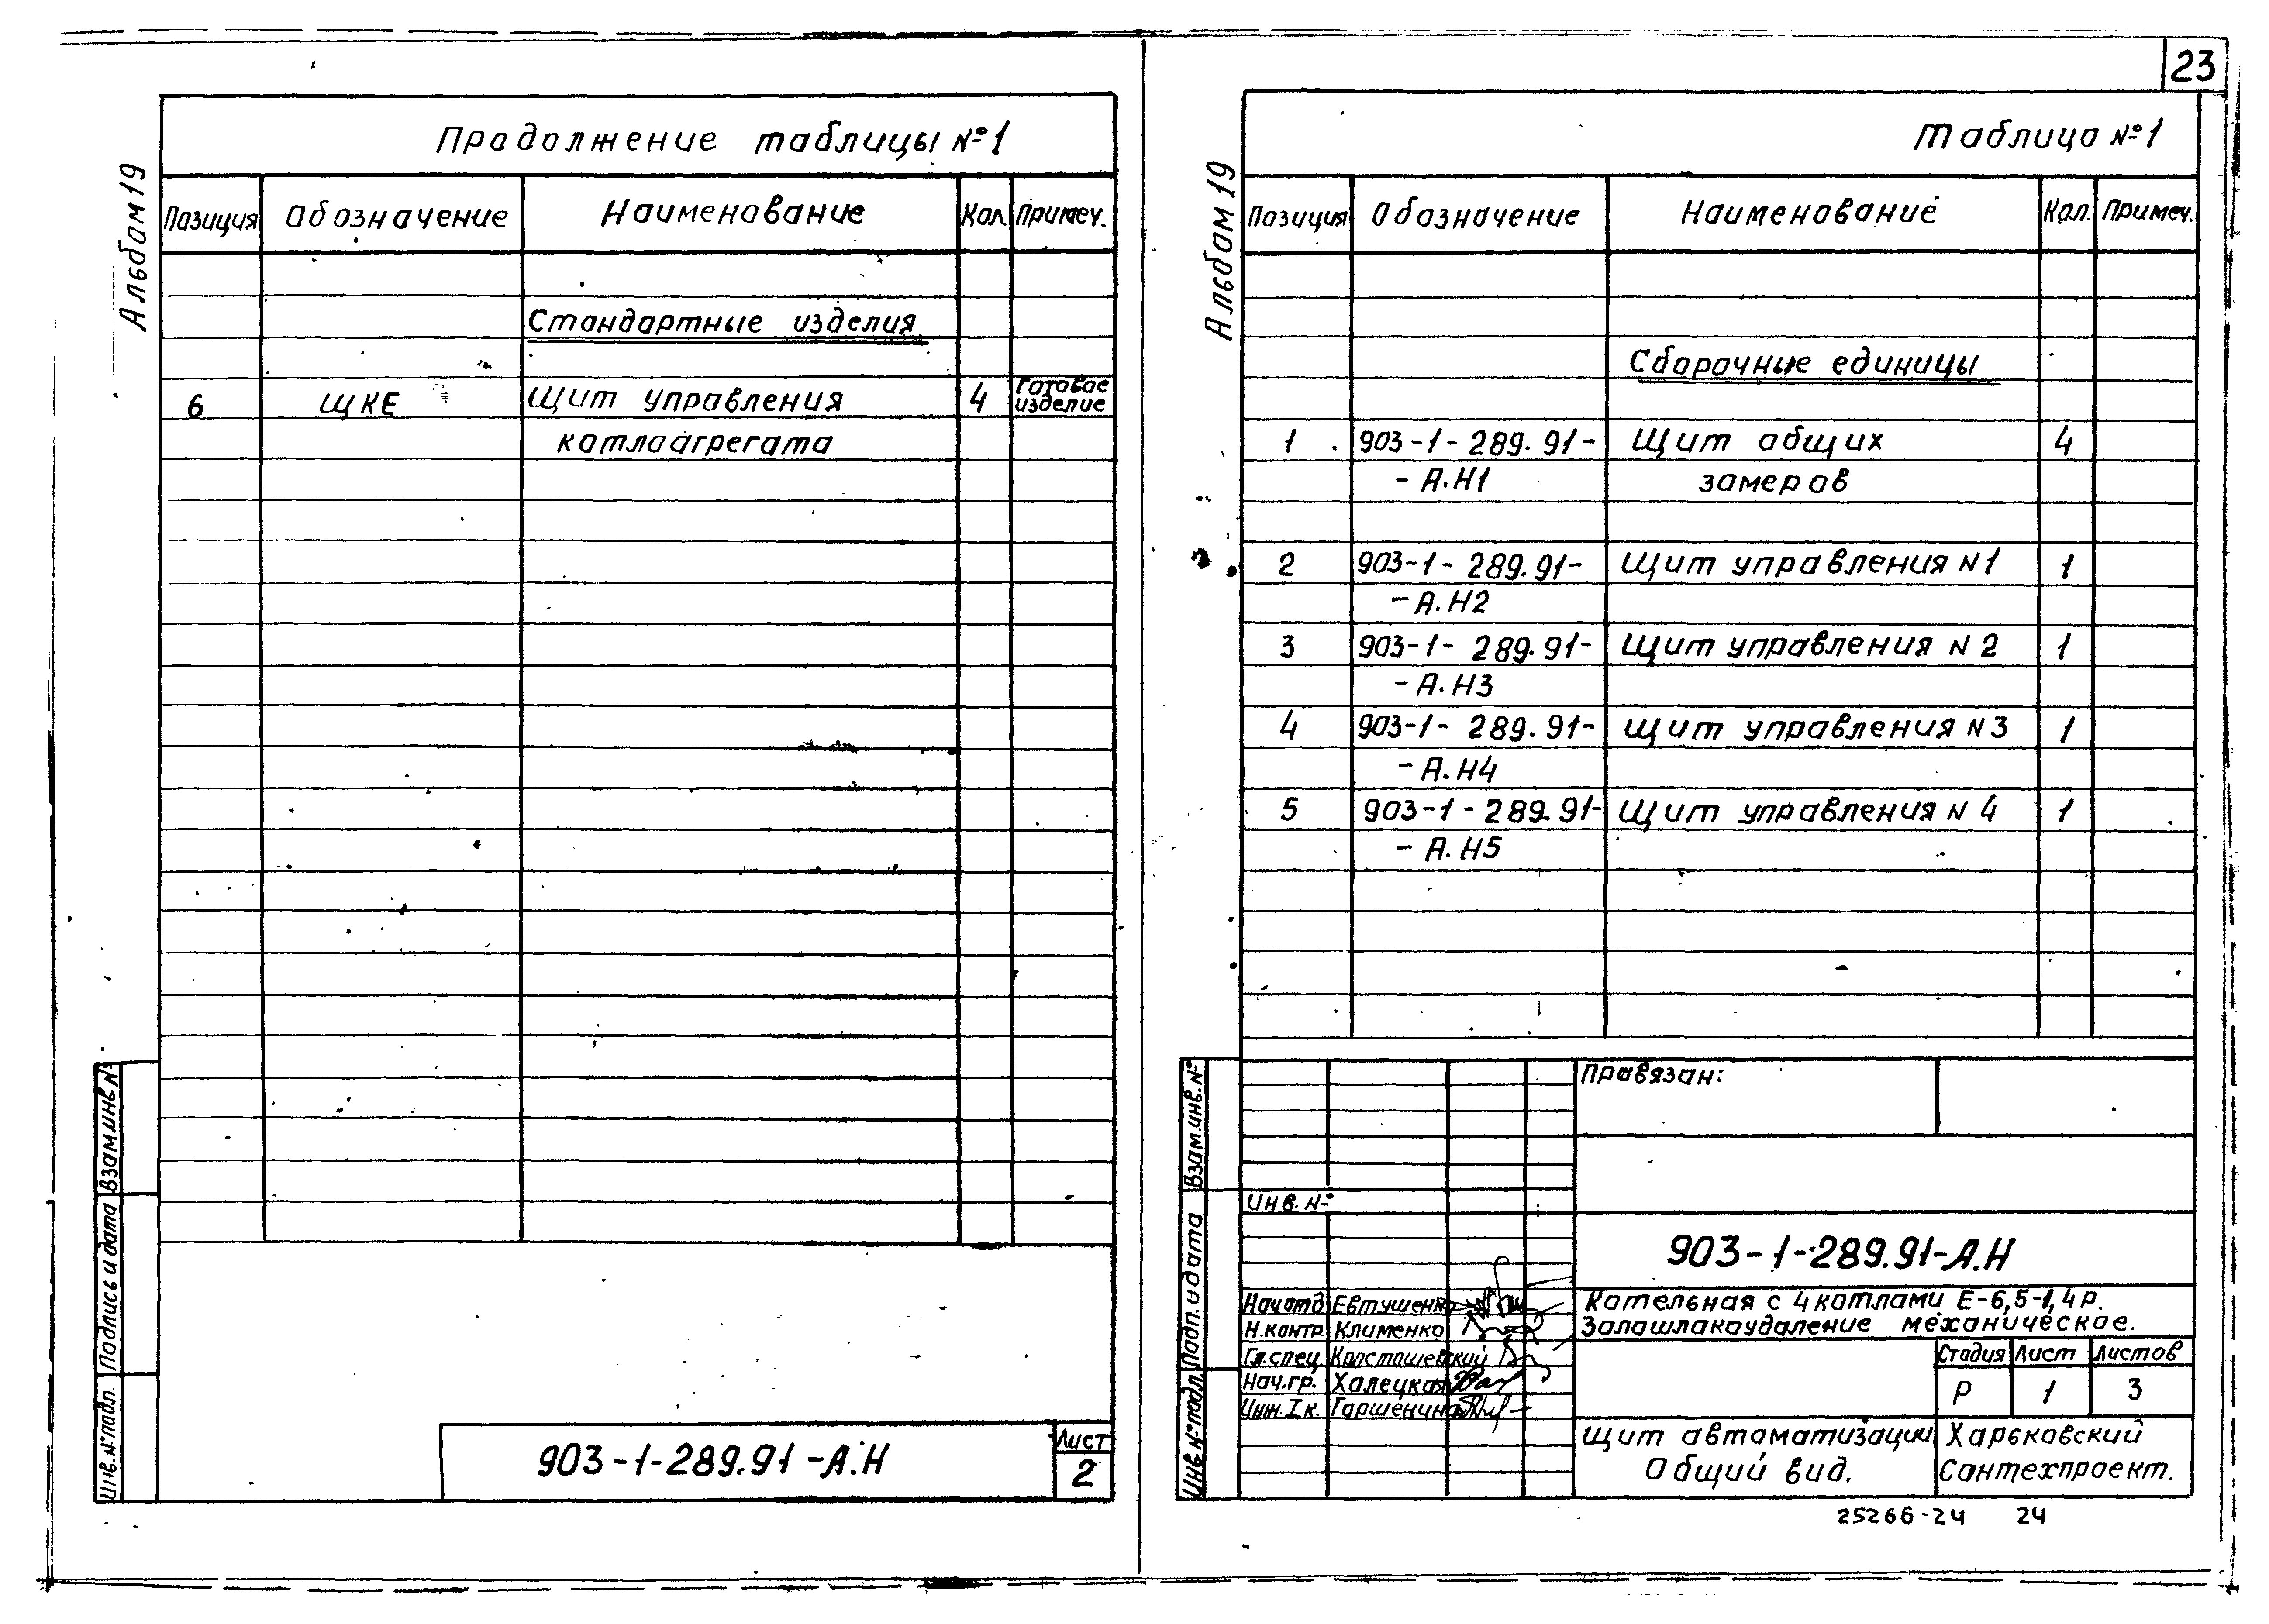 23
Альбом 19
Продолжение таблицы №1
Позиция Обозначение Наименование Кол. Примеч.
Стандартные изделия
6 ЩКЕ Щит управления 4 Готовое изделие
котлоагрегата
Взам.инв.№
Подпись и дата
Инв.№подл.
903-1-289.91-А.Н
Лист
2
Альбом 19
Таблица №1
Позиция Обозначение Наименование Кол. Примеч.
Сборочные единицы
1 903-1-289.91- Щит общих 4
-А.Н1 замеров
2 903-1-289.91- Щит управления N1 1
-А.Н2
3 903-1-289.91- Щит управления N2 1
-А.Н3
4 903-1-289.91- Щит управления N3 1
-А.Н4
5 903-1-289.91- Щит управления N4 1
-А.Н5
Взам.инв.№
Подп. и дата
Инв.№подл.
Привязан:
Инв.№
903-1-289.91-А.Н
Нач.отд Евтушенко
Н.контр. Клименко
Гл.спец. Колсташевский
Нач.гр. Халецкая
Инж.Iк. Гаршенина
Котельная с 4 котлами Е-6,5-1,4р.
Золошлакоудаление механическое.
Стадия Лист Листов
Р 1 3
Щит автоматизации
Общий вид.
Харьковский
Сантехпроект.
25266-24 24